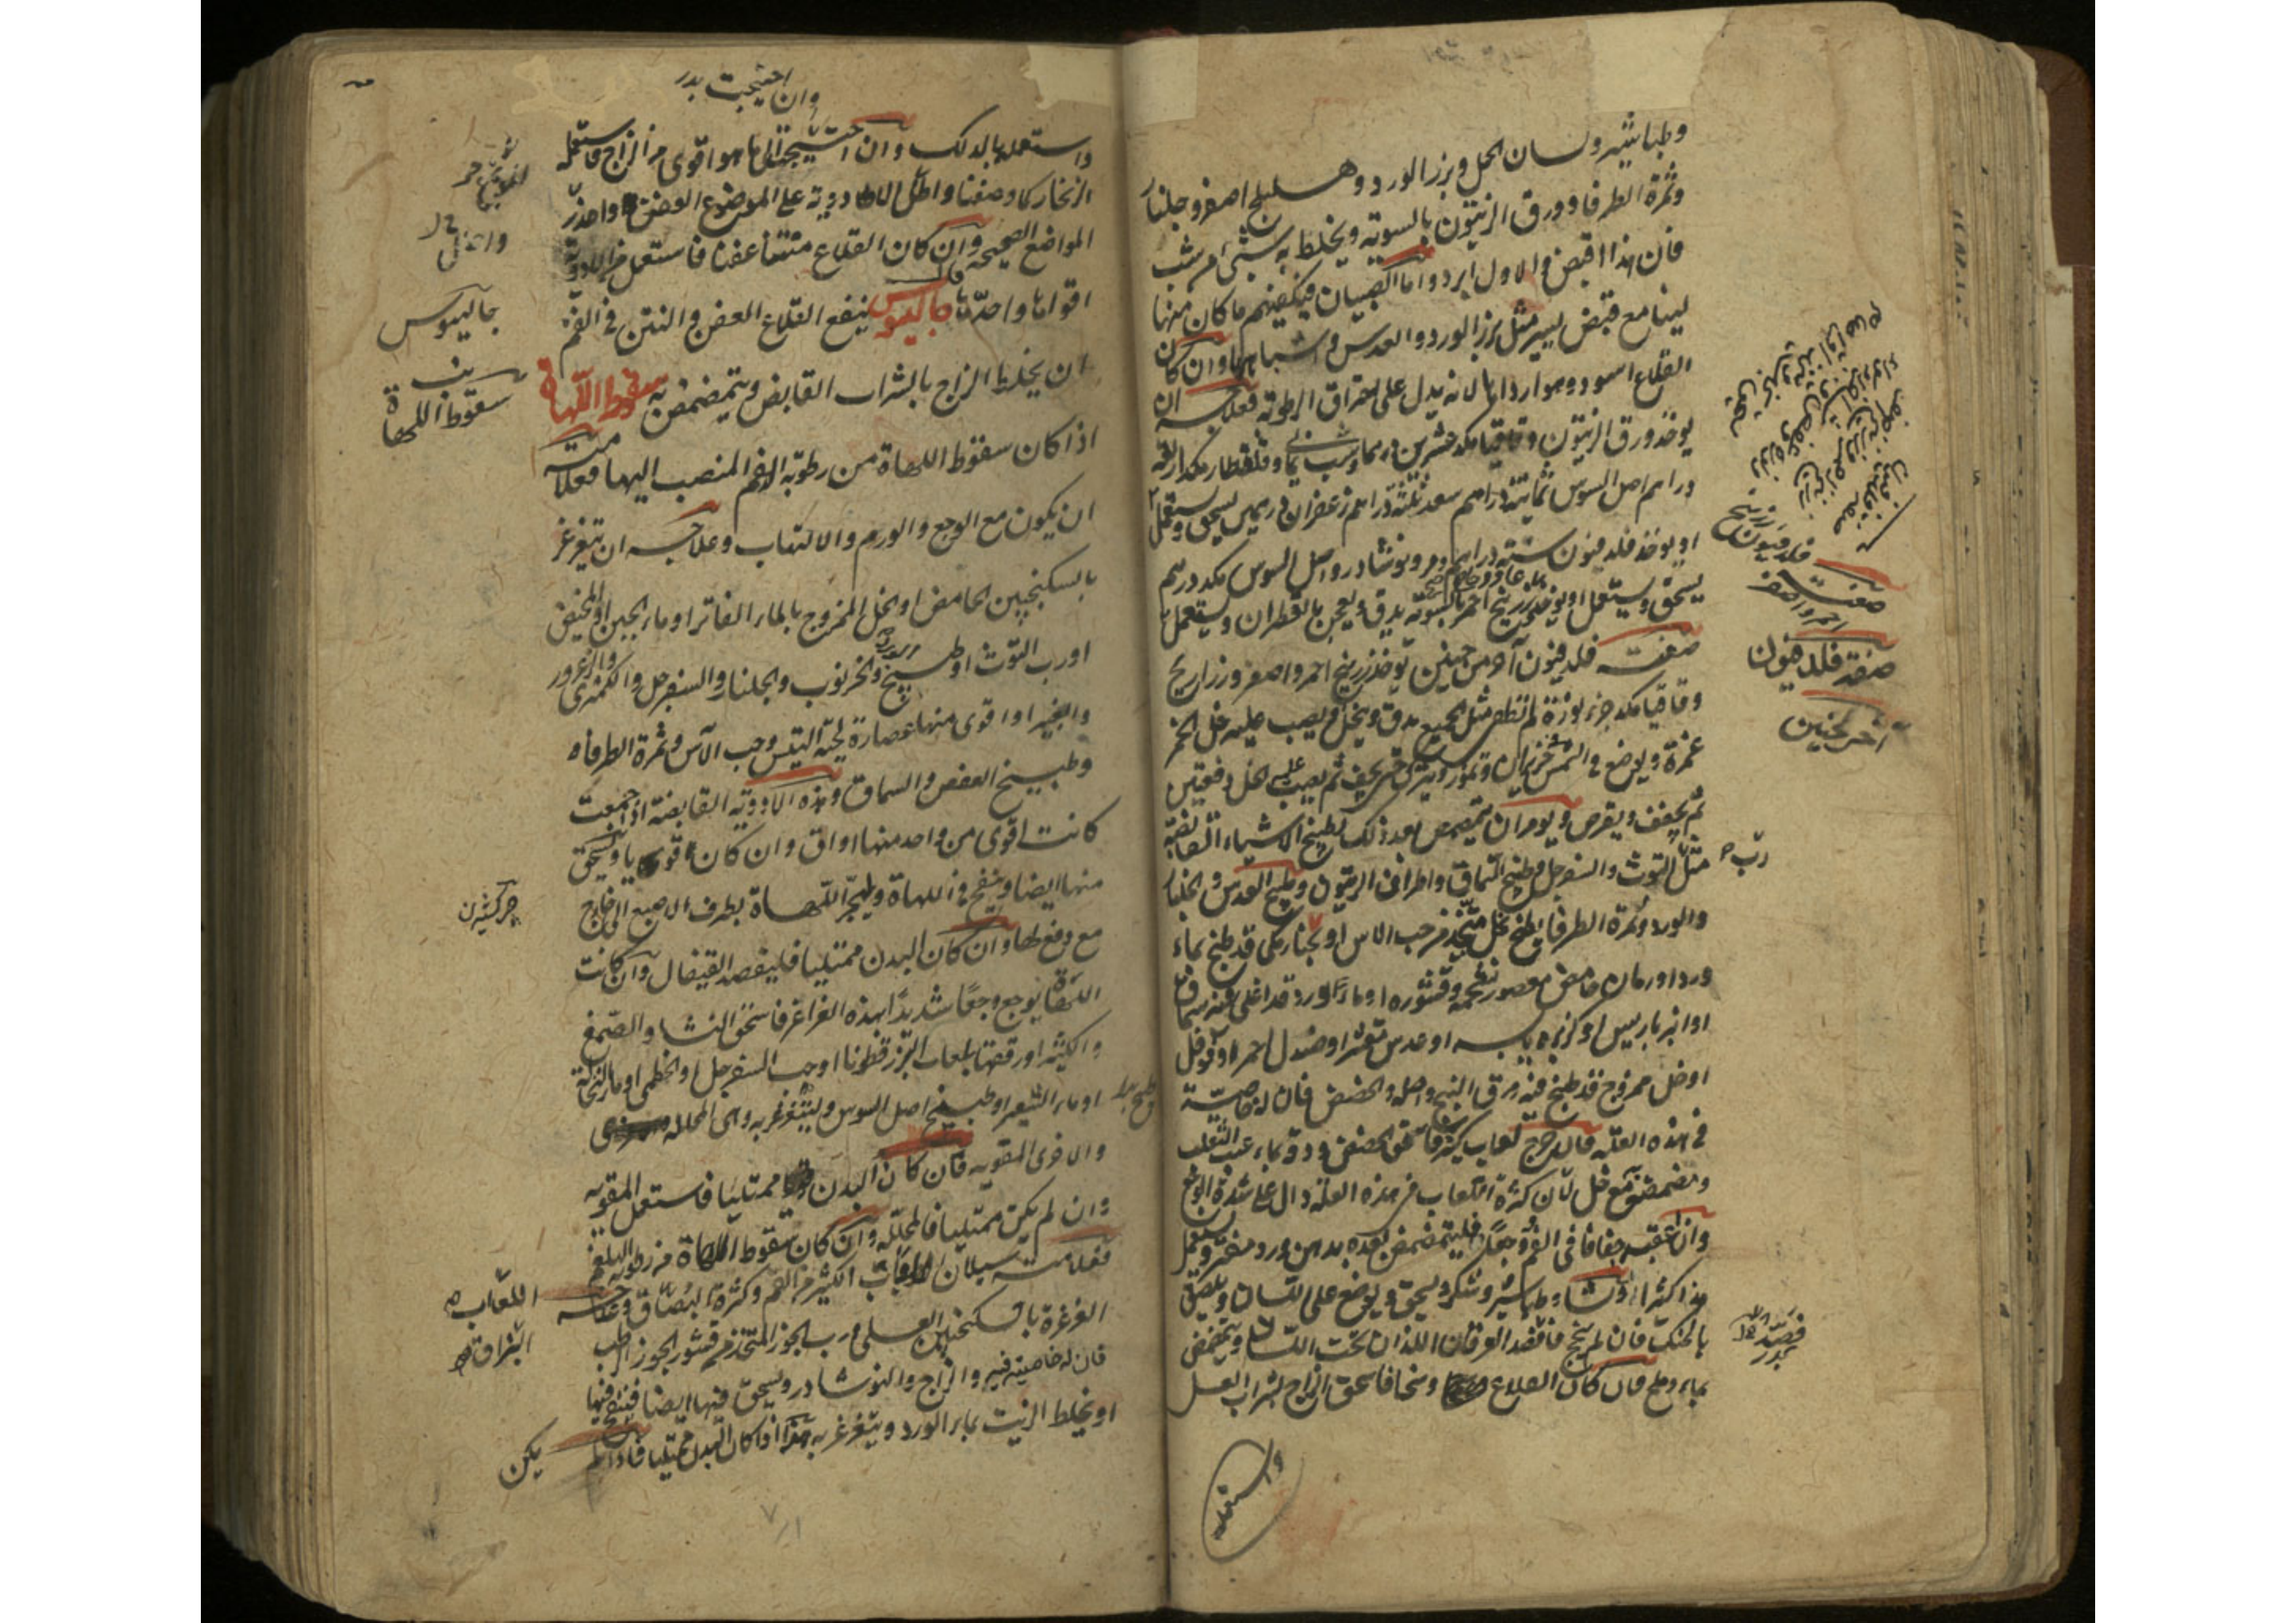 وطباشير ولسان الحمل وبزر الورد وهليلج اصفر وجلنار
وثمرة الطرفا وورق الزيتون بالسوية ويخلط به شيئ من شب
فان هذا اقبض والاول ابرد واما الصبيان فيكفيهم ما كان منها
لينا مع قبض يسير مثل بزر الورد والعدس واشباهها وان كان
القلاع اسود وهو ارداها لانه يدل على احتراق الرطوبة فعلاجه ان
يوخذ ورق الزيتون وقاقيا مكد عشرين وشب يماني وقلقطار مكد اربعة
دراهم اصل السوس ثمانية دراهم سعد ثلثة دراهم زعفران درهمين يسحق ويستعمل
او يوخذ فلدفيون ستة دراهم ونوشادر واصل السوس مكد درهم
يسحق ويستعمل او يوخذ زرنيخ احمر بالسوية يدق ويعجن بالقطران ويستعمل
صفت فلدفيون آخر من حنين يوخذ زرنيخ احمر واصفر وزراريح
وقاقيا مكد جزء نورة لم تطف مثل الجميع يدق وينخل ويصب عليه خل الخمر
غمرة ويوضع في الشمس حزيران وتموز ويترك حتى يجف ثم يصب عليه الخل دفعتين
ثم يجفف ويقرص ويومر ان يتمضمض بعد ذلك بطبيخ الاشياء القابضة
مثل التوث والسفرجل وطبيخ السماق واطراف الزيتون وطبيخ العدس والجلنار
والورد وثمرة الطرفا يطبخ بخل متخذ من حب الاس او بجنار مكي قد طبخ بماء
ورد او رمان حامض معصور بشحمه وقشوره او ماء ورد قد اغلي فيه سماق
او انبرباريس او كزبرة يابسه او عدس مقشر او صندل احمر او فوفل
او خل ممزوج قد طبخ فيه ورق البنج واصله والحضض فان له خاصية
في هذه العلة فان خرج لعاب كثير فاسحق الحضض ودقه بماء عنب الثعلب
ومضمضه مع خل لان كثرة اللعاب في هذه العلة دال على شدة الوجع
وان اعقبه جفافا في الفم ووجعا فليتمضمض بعده بدهن ورد مفتر ويستعمل
هذا كثيرا ونشا وطباشير وسكر ويسحق ويوضع على اللسان ويلصق
بالحنك فان لم ينجح فافصد العرقان اللذان تحت اللسان ويتمضمض
بماء وملح فان كان القلاع وسخا فاسحق الزاج بشراب العسل
واستعمله
صفة فلدفيون
آخر لحنين
رب
وان احتيجت
واستعمله بالدلك وان احتيجت الى ما هو اقوى من الزاج فاستعمل
الزنجار كما وصفنا واطل الادوية على الموضع العفن واحذر
المواضع الصحيحة وان كان القلاع منتنا عفنا فاستعمل من الادوية
اقواها واحدّها قال جالينوس ينفع القلاع العفن والنتن في الفم
ان يخلط الزاج بالشراب القابض ويتمضمض به سقوط اللهاة
اذا كان سقوط اللهاة من رطوبة الدم المنصب اليها فعلامته
ان يكون مع الوجع والورم والالتهاب وعلاجه ان يتغرغر
بالسكنجبين الحامض او الخل الممزوج بالماء الفاتر او ماء الجبن او المخيض
او رب التوث او طبيخ الخرنوب والجلنار والسفرجل والكمثرى والزعرور
والغبيرا او اقوى منها عصارة لحية التيس وحب الآس وثمرة الطرفاء
وطبيخ العفص والسماق وهذه الادوية القابضة اذا جمعت
كانت اقوى من واحد منها اواق وان كان قويا ويسحق
منها ايضا وينفخ في اللهاة وليجر اللهاة بطرف الاصبع الى خارج
مع دفع لها وان كان البدن ممتليا فليفصد القيفال وان كانت
اللهاة يوجع وجعا شديدا بهذه الغراغر فاسحق النشا والصمغ
والكثيرا وقرصها بلعاب البزر قطونا او حب السفرجل او الخطمي او ماء النخالة
او ماء الشعير او طبيخ اصل السوس ويتغرغر به وهي المحللة
والاقوى المقوية فان كان البدن ممتليا فاستعمل المقوية
وان لم يكن ممتليا فالمحللة وان كان سقوط اللهاة من رطوبة البلغم
فعلامته سيلان اللعاب الكثير من الفم وكثرة البصاق وعلاجه
الغرغرة بالسكنجبين العسلي ورب الجوز المتخذ من قشور الجوز الرطب
فان له خاصية فيه والزاج والنوشادر ويسحق فيها ايضا فينفخ فيها
او يخلط الزيت بماء الورد ويتغرغر به هذا اذا كان البدن ممتليا فاذا لم
يكن
جالينوس
سقوط اللهاة
اللعاب
البزاق